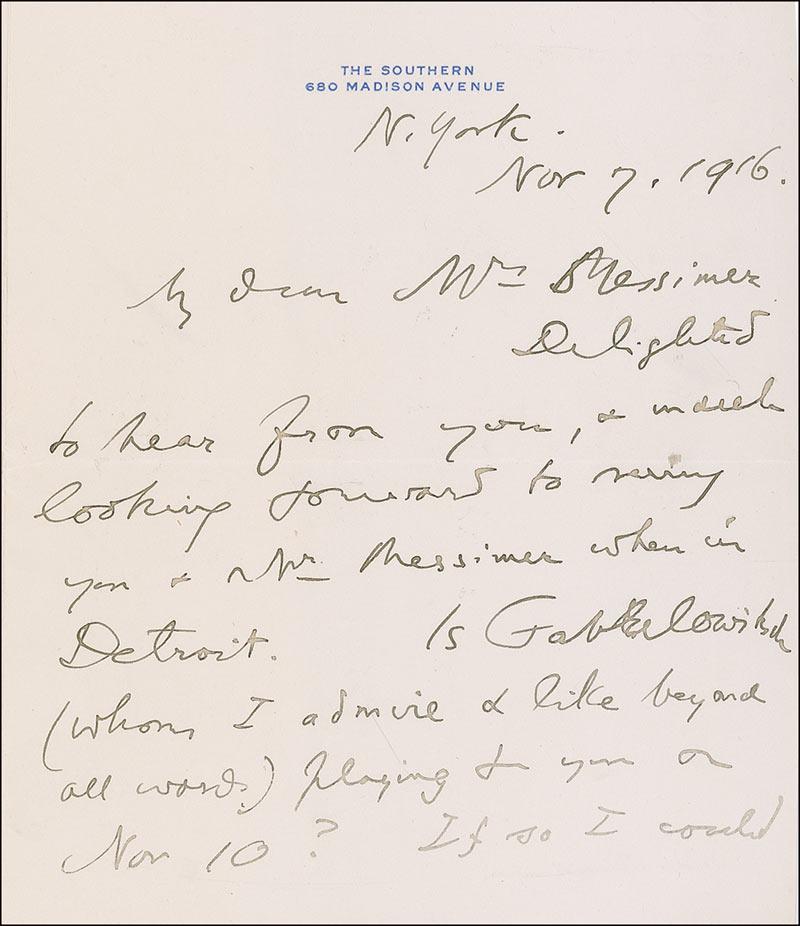 THE SOUTHERN
680 MADISON AVENUE
N. York.
Nov 7. 1916.
My dear Mrs Messimer
Delighted
to hear from you, & much
looking forward to seeing
you & Mr Messimer when in
Detroit. Is Gabrilowitsch
(whom I admire & like beyond
all words) playing to you on
Nov 10? If so I could